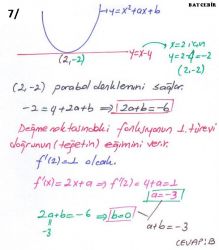 BATCEBİR
7/
y=x²+ax+b
x=2 için
y=x-4
y=2-4=-2
(2,-2)
(2,-2)
(2,-2) parabol denklemini sağlar.
-2=4+2a+b ⇒ 2a+b=-6
Değme noktasındaki fonksiyonun 1. türevi
doğrunun (teğetin) eğimini verir.
f'(2)=1 olacak.
f'(x)=2x+a ⇒ f'(2)=4+a=1
a=-3
2a+b=-6 ⇒ b=0
-3
a+b=-3
CEVAP:B